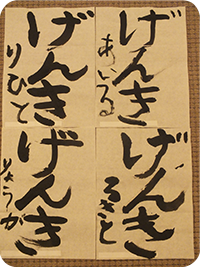 げんき
あいる
げんき
りひと
げんき
るきと
げんき
りょうが